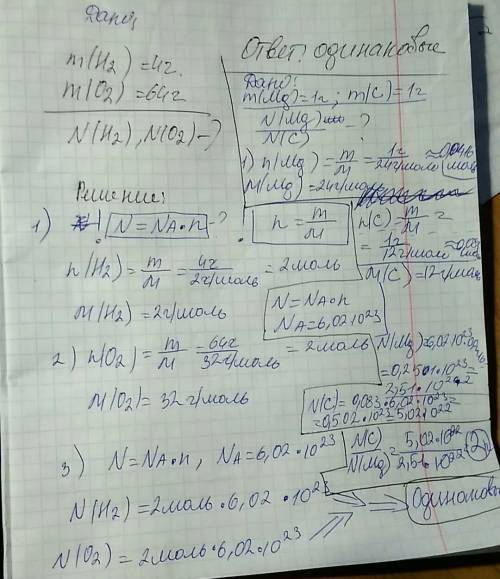 Дано:
m(H₂) = 4г.
m(O₂) = 64г
N(H₂), N(O₂) - ?
Решение:
1) N = NA·n - ? n = m/M
n(H₂) = m/M = 4г/2г/моль = 2моль
M(H₂) = 2г/моль
2) n(O₂) = m/M = 64г/32г/моль = 2моль
M(O₂) = 32г/моль
3) N = NA·n, NA = 6,02·10²³
N(H₂) = 2моль·6,02·10²³
N(O₂) = 2моль·6,02·10²³
=> Одинаковы
Ответ: одинаковые
Дано:
m(Mg) = 1г; m(C) = 1г
N(Mg)/N(C) - ?
1) n(Mg) = m/M = 1г/24г/моль ≈ 0,0416 моль
M(Mg) = 24г/моль
n(C) = m/M =
= 1г/12г/моль ≈ 0,083 моль
M(C) = 12г/моль
N = NA·n
NA = 6,02·10²³
N(Mg) = 6,02·10²³·
= 0,2501·10²³ =
2,51·10²²
N(C) = 0,083·6,02·10²³ =
= 0,502·10²³ = 5,02·10²²
N(C)/N(Mg) = 5,02·10²²/2,51·10²² = 2